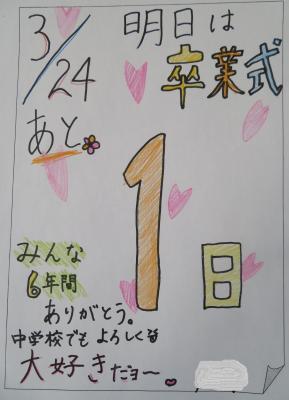 3/24
明日は
卒業式
あと
1日
みんな
6年間
ありがとう。
中学校でもよろしくね
大好きだョ〜